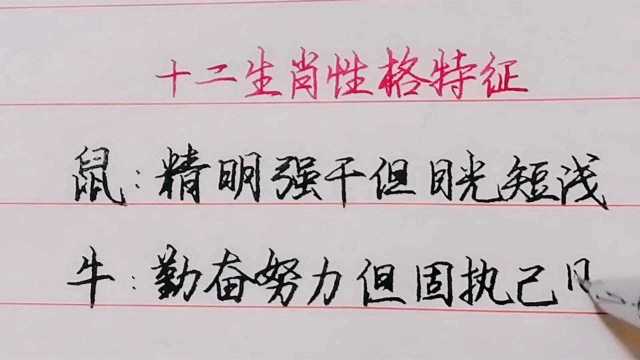 十二生肖性格特征
鼠:精明强干但目光短浅
牛:勤奋努力但固执己